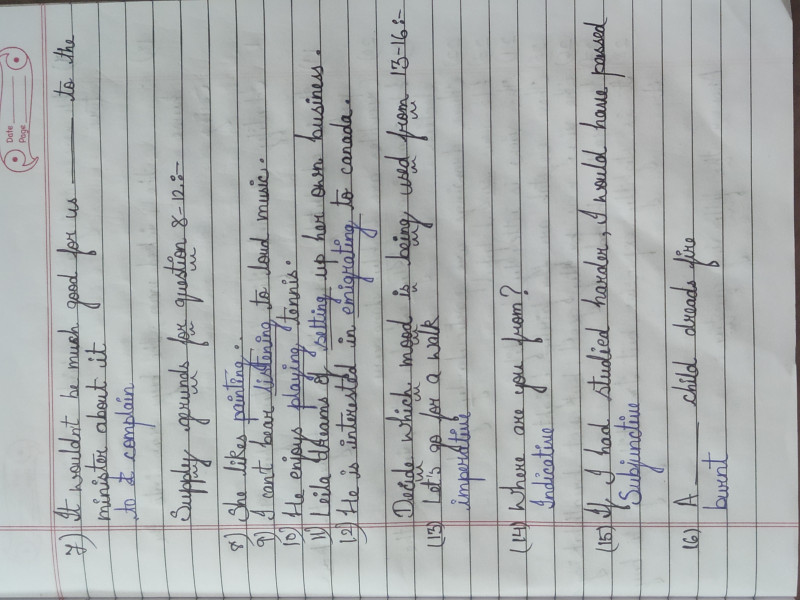 Date
Page
7) It wouldn't be much good for us ______ to the
minister about it
to complain
Supply gerunds for question 8-12:-
8) She likes painting.
9) I can't bear listening to loud music.
10) He enjoys playing tennis.
11) Leila dreams of setting up her own business.
12) He is interested in emigrating to canada.
Decide which mood is being used from 13-16:-
(13) Let's go for a walk
imperative
(14) Where are you from?
Indicative
(15) If I had studied harder, I would have passed
Subjunctive
(6) A ______ child dreads fire
burnt